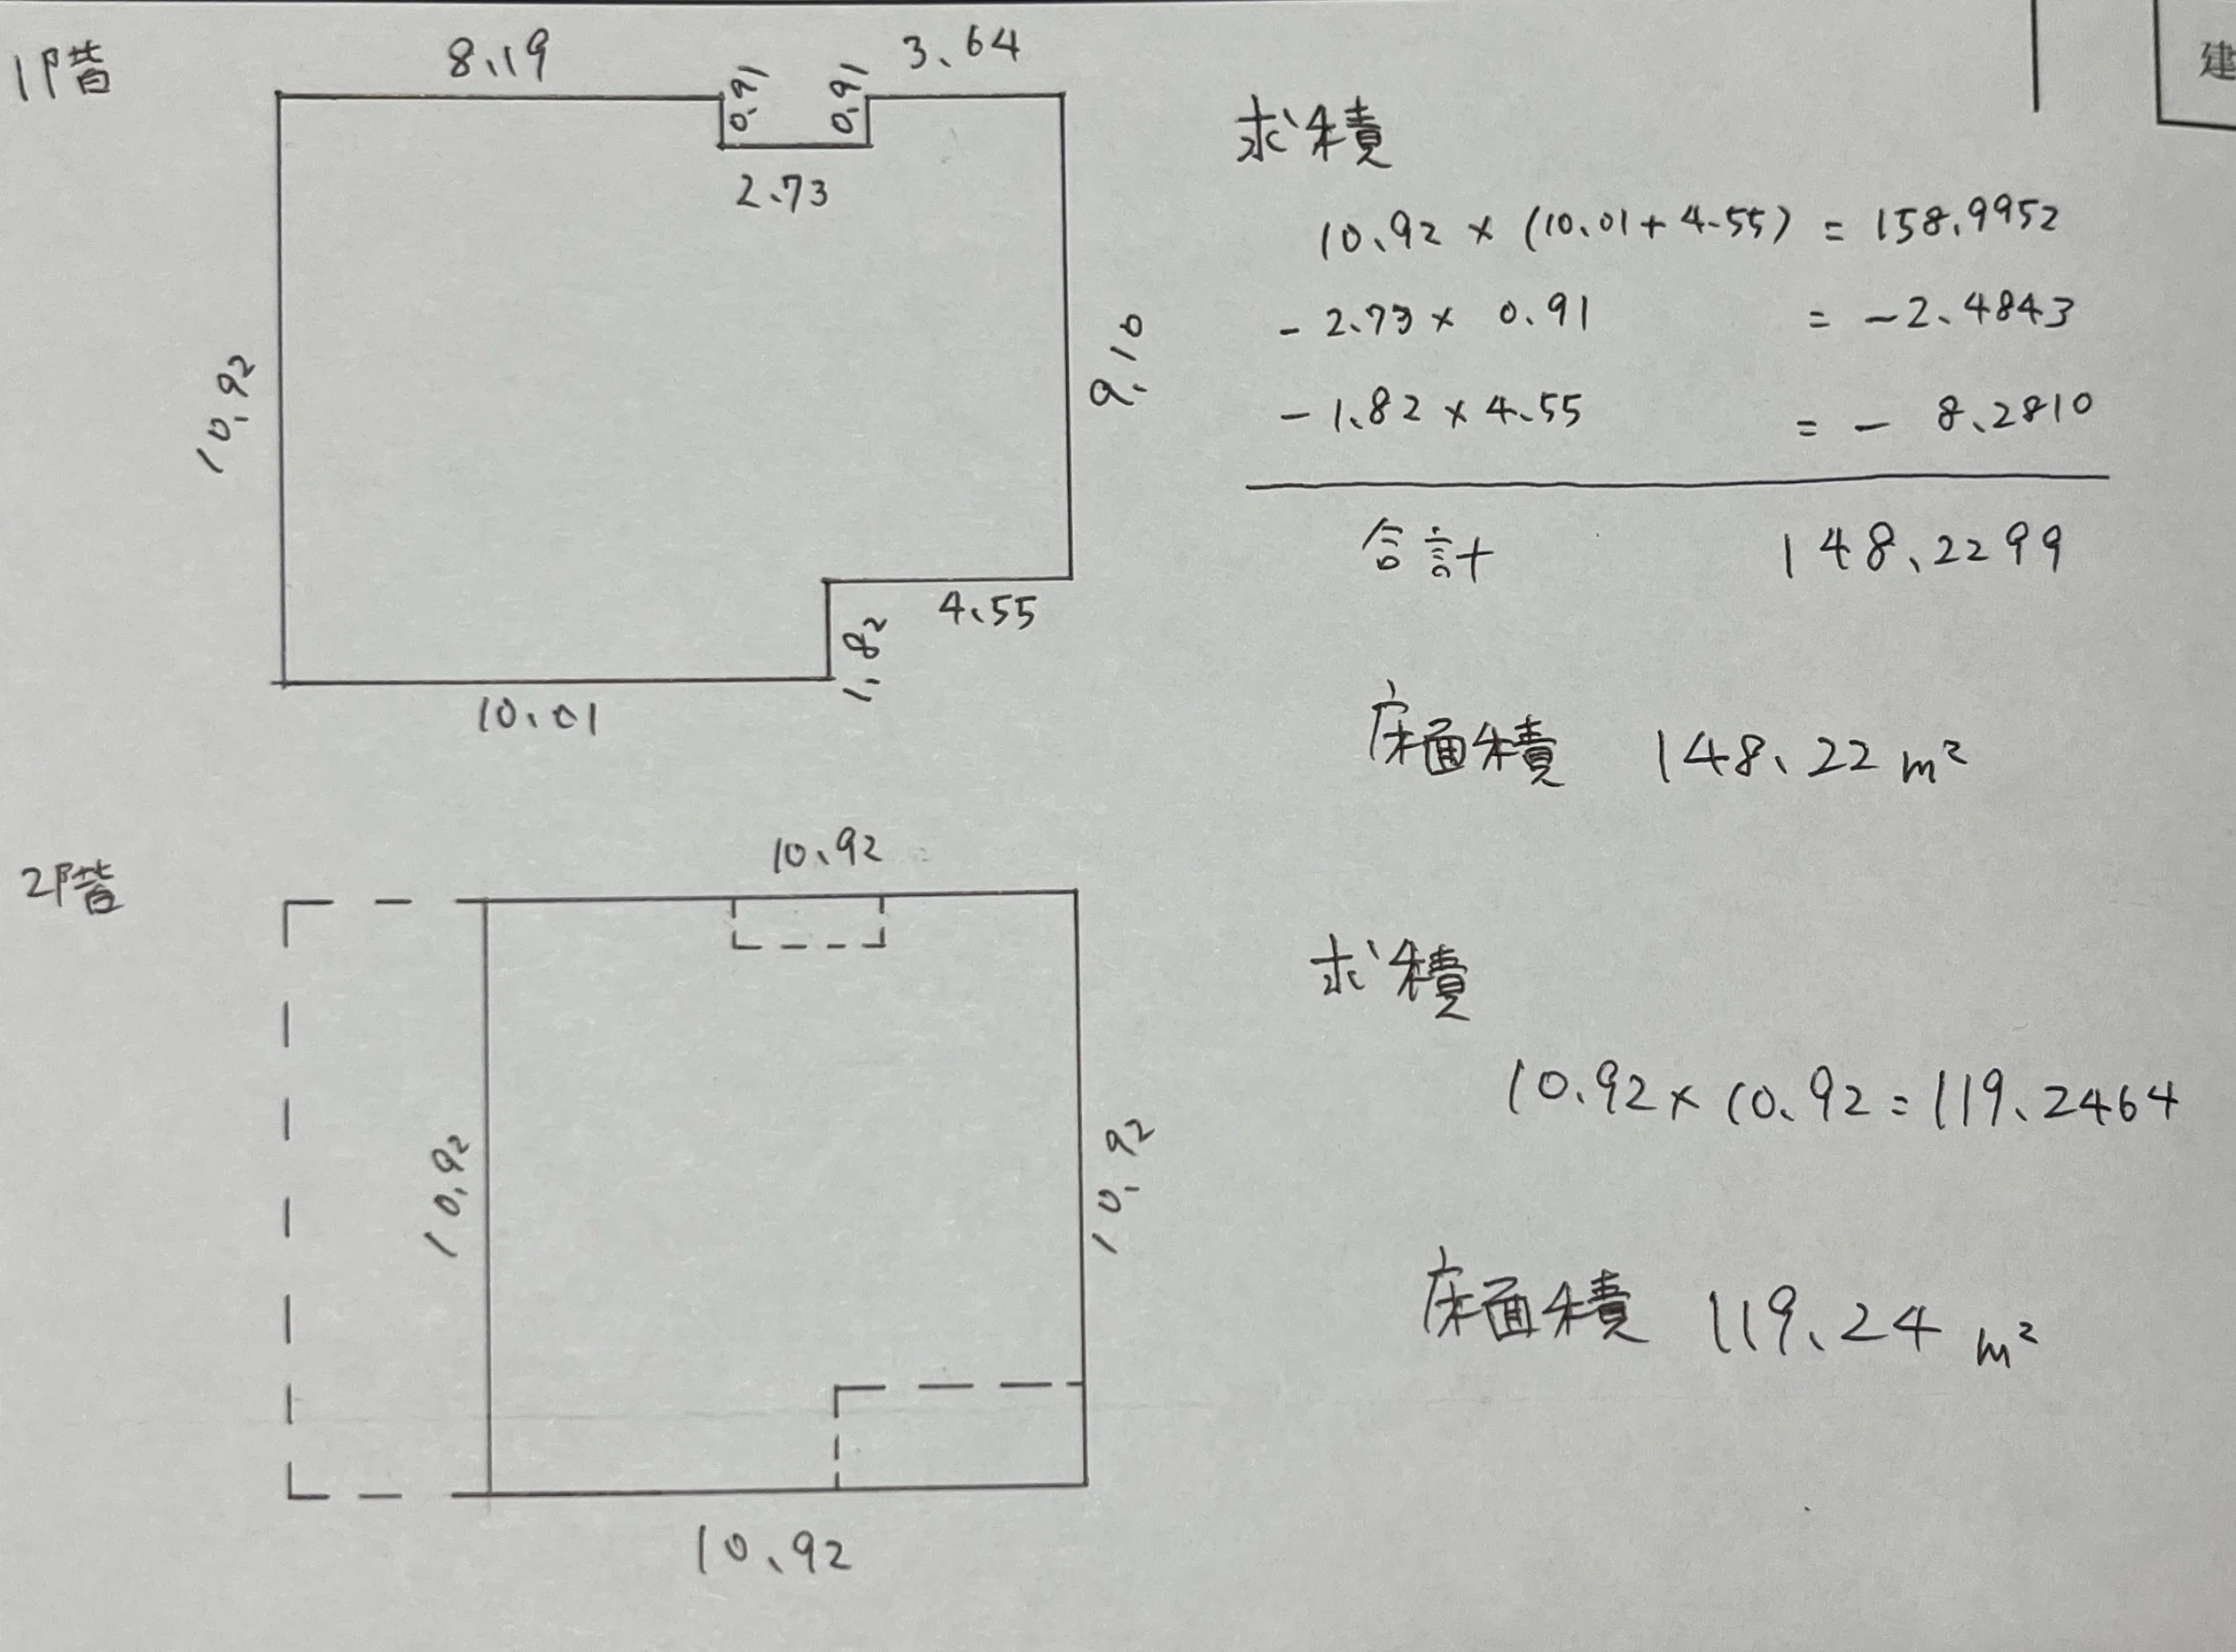 1階
8.19
3.64
0.91
0.91
2.73
10.92
9.10
4.55
1.82
10.01
求積
10.92 × (10.01+4.55) = 158.9952
- 2.73 × 0.91 = -2.4843
- 1.82 × 4.55 = - 8.2810
合計 148.2299
床面積 148.22 m²
2階
10.92
10.92
10.92
10.92
求積
10.92 × 10.92 = 119.2464
床面積 119.24 m²
建